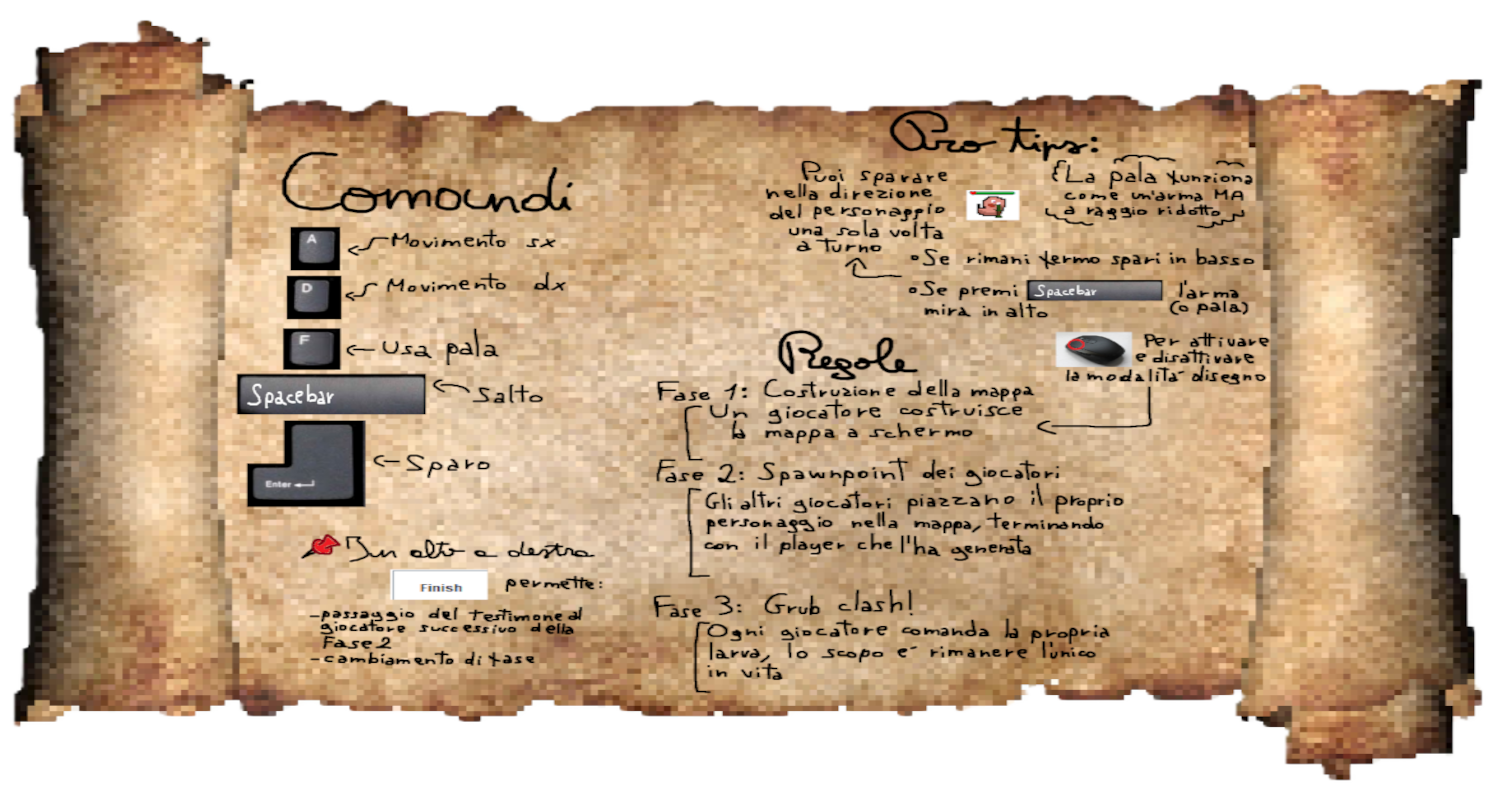 Comandi
A
Movimento sx
D
Movimento dx
F
Usa pala
Spacebar
Salto
Enter
Sparo
In alto a destra
Finish permette:
-passaggio del testimone al
giocatore successivo della
Fase 2
-cambiamento di fase
Pro tips:
Puoi sparare
nella direzione
del personaggio
una sola volta
a turno
La pala funziona
come un'arma MA
a raggio ridotto
Se rimani fermo spari in basso
Se premi Spacebar l'arma
(o pala)
mira in alto
Per attivare
e disattivare
la modalità disegno
Regole
Fase 1: Costruzione della mappa
Un giocatore costruisce
la mappa a schermo
Fase 2: Spawnpoint dei giocatori
Gli altri giocatori piazzano il proprio
personaggio nella mappa, terminando
con il player che l'ha generata
Fase 3: Grub clash!
Ogni giocatore comanda la propria
larva, lo scopo è rimanere l'unico
in vita